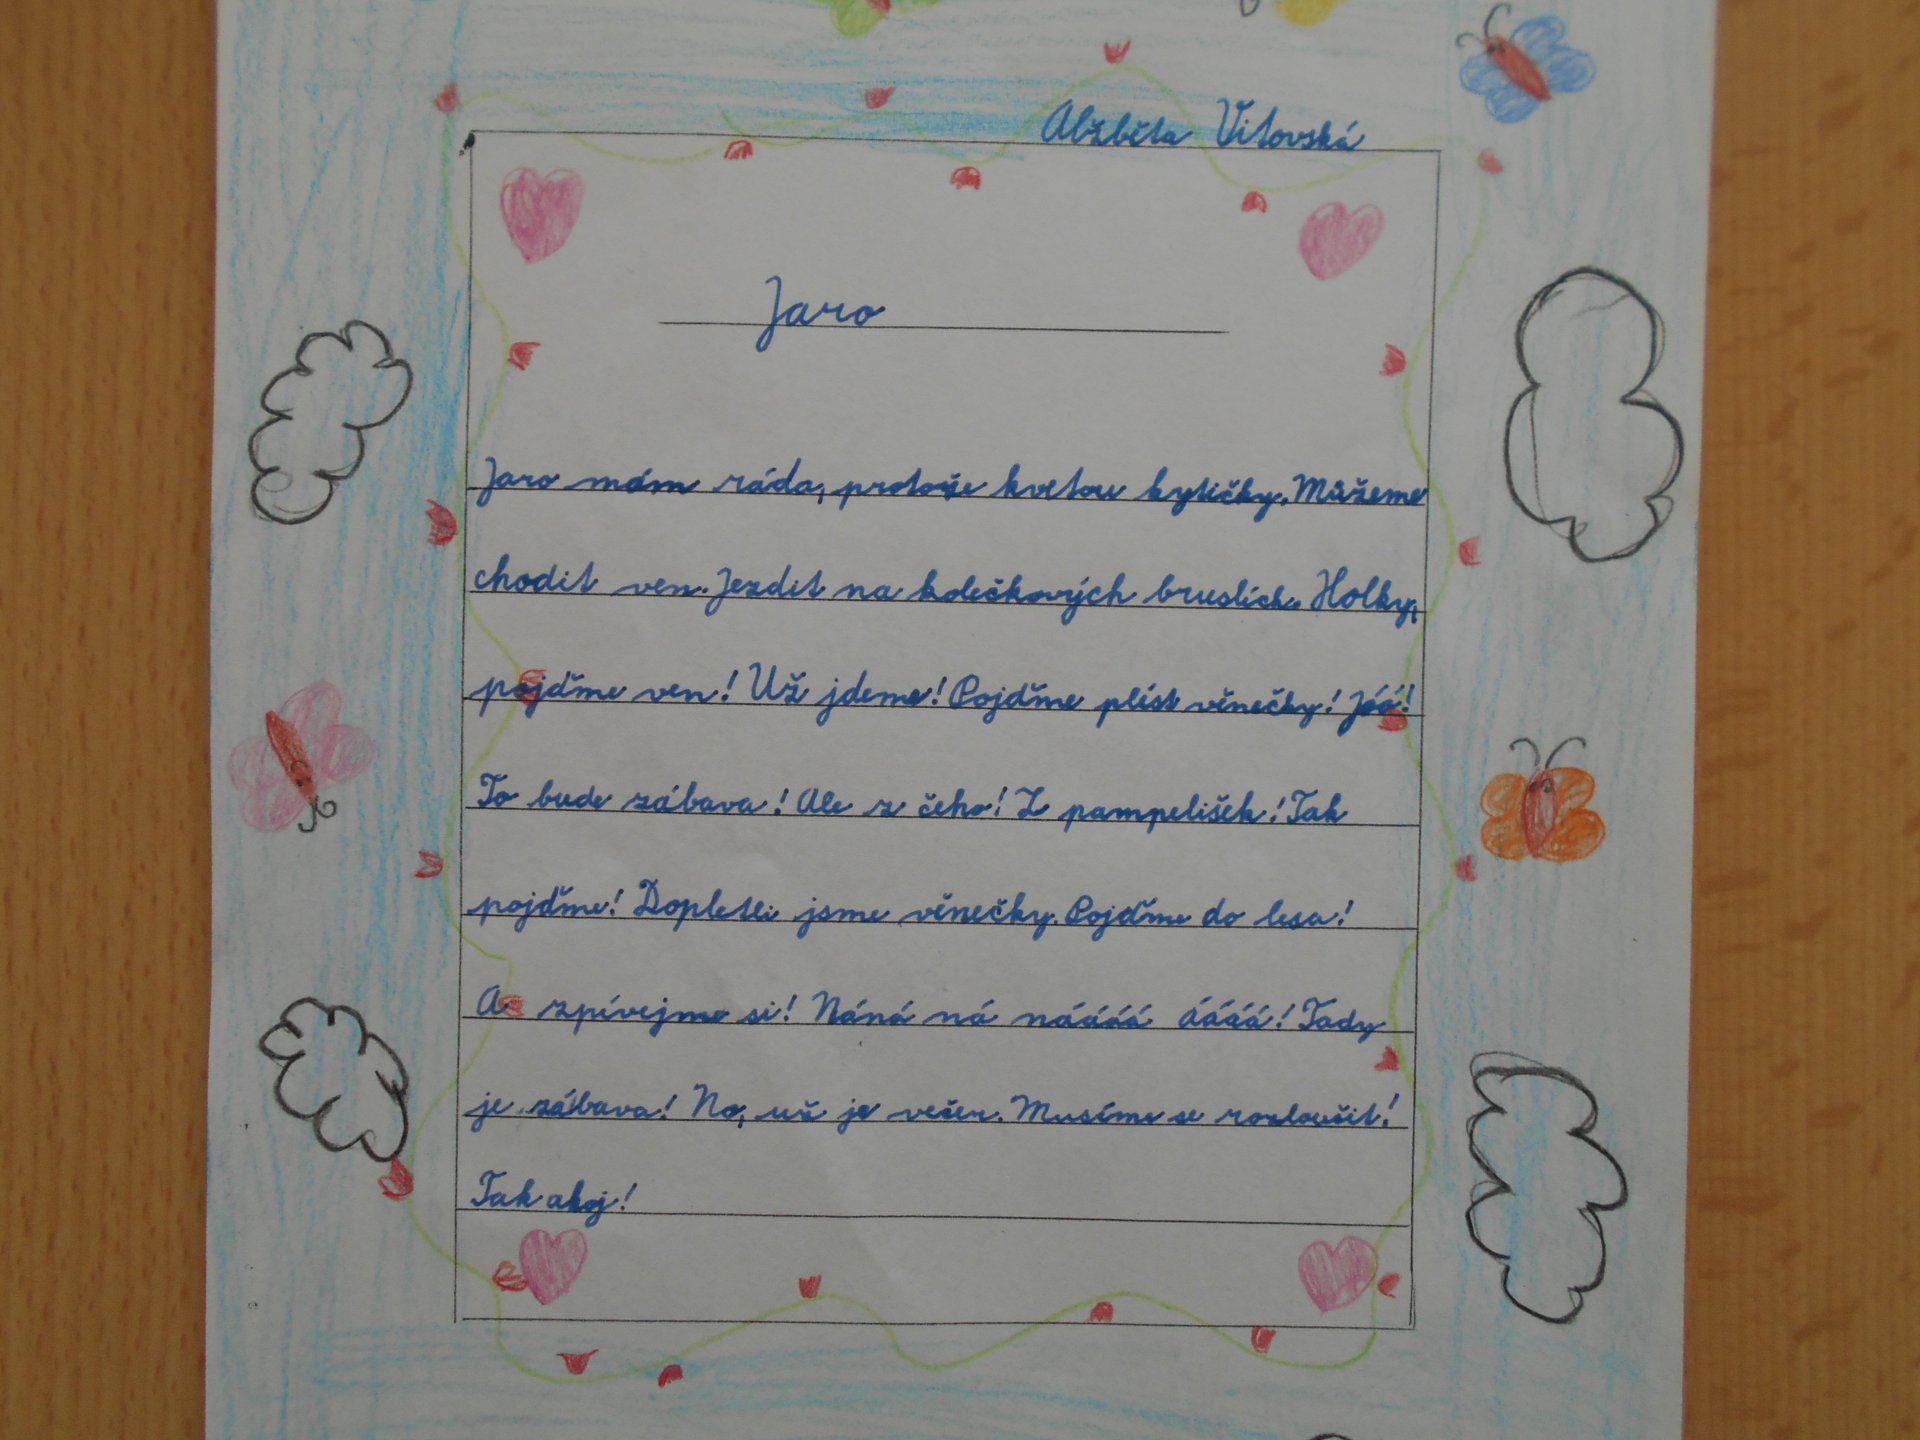 Alžběta Vitovská
Jaro
Jaro mám ráda, protože kvetou kytičky. Můžeme
chodit ven. Jezdit na kolečkových bruslích. Holky,
pojďme ven! Už jdeme! Pojďme plést věnečky! Jóó!
To bude zábava! Ale z čeho! Z pampelišek! Tak
pojďme! Dopletli jsme věnečky. Pojďme do lesa!
A zpívejme si! Náná ná náááá áááá! Tady
je zábava! No, už je večer. Musíme se rozloučit!
Tak ahoj!